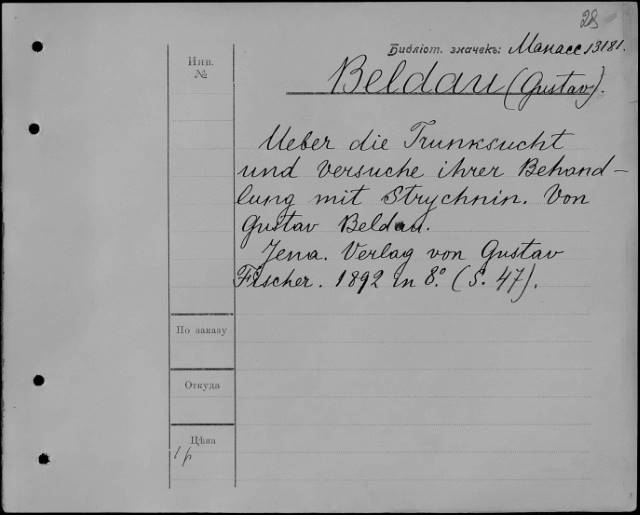 28
Библіот. значекъ: Манасс 13181.
Инв.
№
Beldau (Gustav).
Ueber die Trunksucht
und Versuche ihrer Behand-
lung mit Strychnin. Von
Gustav Beldau.
Jena. Verlag von Gustav
Fischer. 1892 in 8.° (S. 47).
По заказу
Откуда
Цѣна
1 р